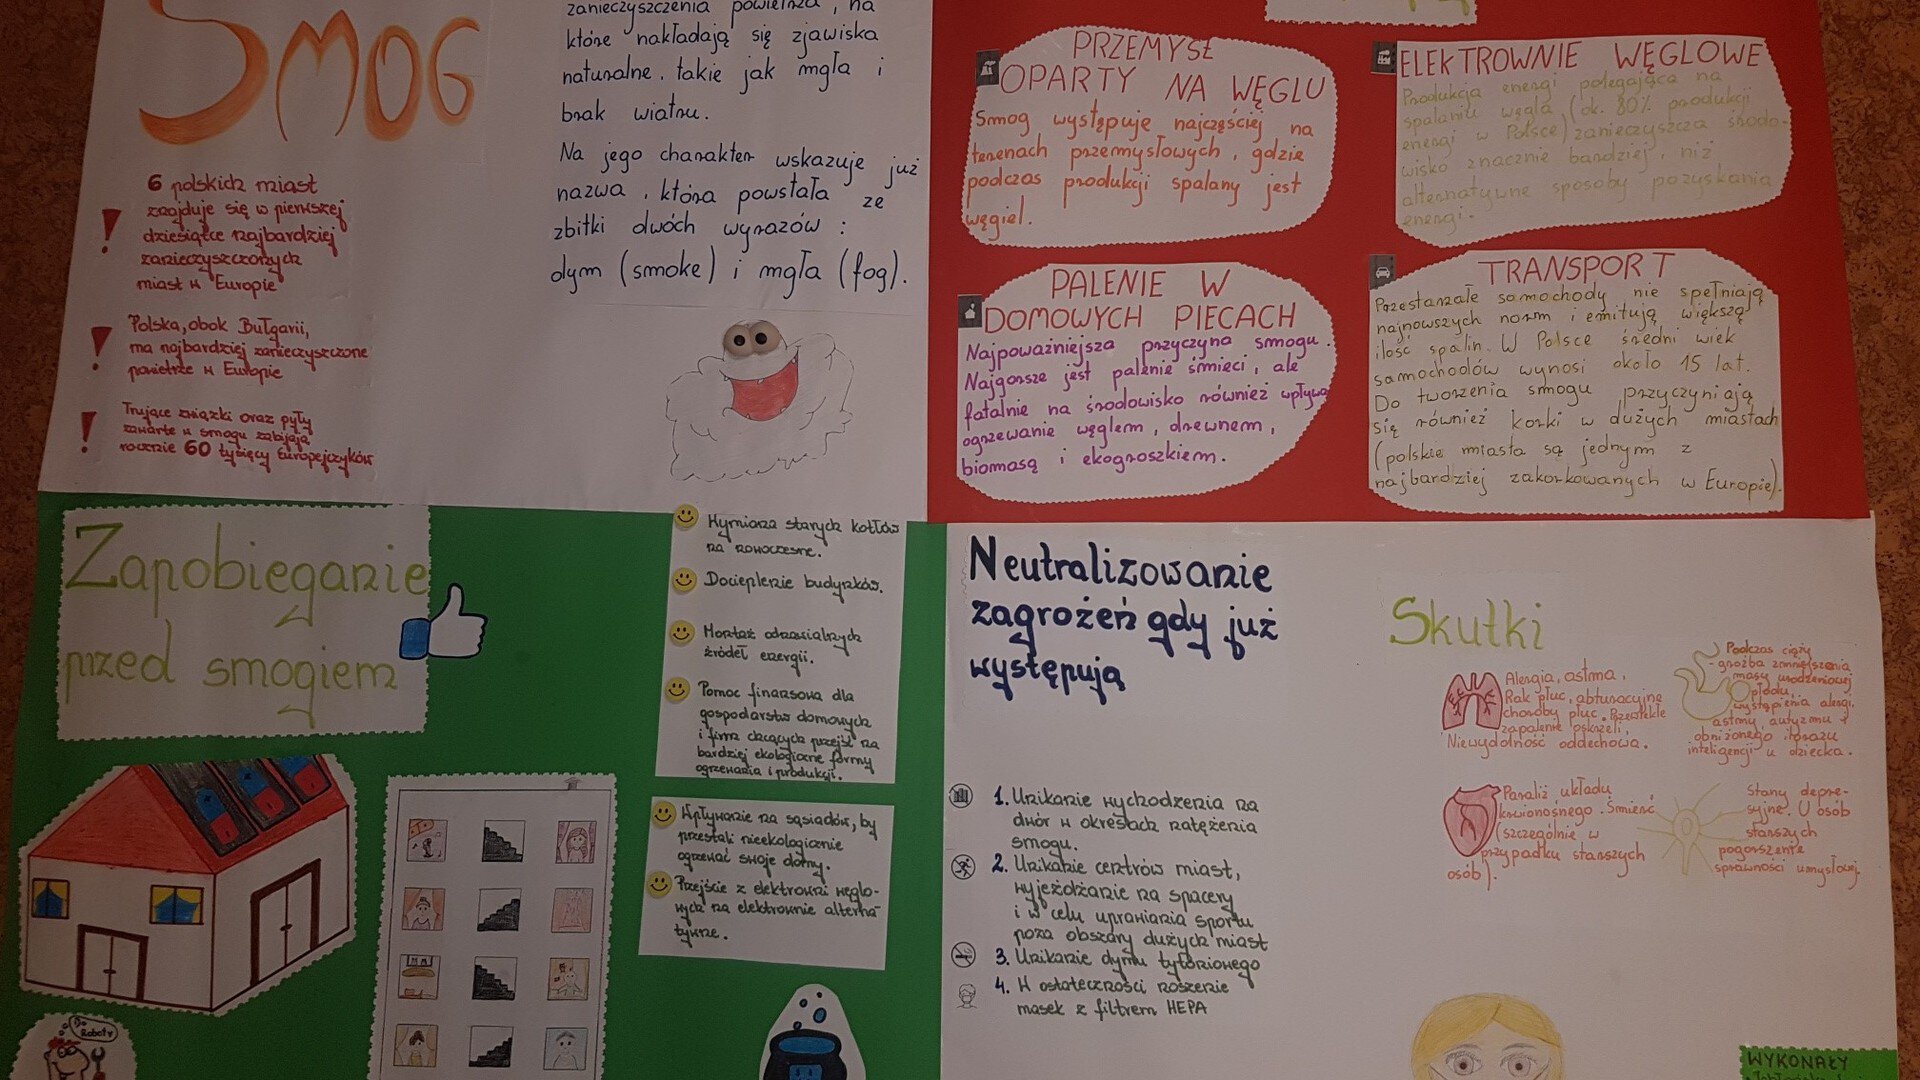 SMOG
zanieczyszczenia powietrza, na
które nakładają się zjawiska
naturalne, takie jak mgła i
brak wiatru.
Na jego charakter wskazuje już
nazwa, która powstała ze
zbitki dwóch wyrazów:
dym (smoke) i mgła (fog).
6 polskich miast
znajduje się w pierwszej
dziesiątce najbardziej
zanieczyszczonych
miast w Europie
Polska, obok Bułgarii,
ma najbardziej zanieczyszczone
powietrze w Europie
Trujące związki oraz pyły
zawarte w smogu zabijają
rocznie 60 tysięcy Europejczyków
PRZEMYSŁ
OPARTY NA WĘGLU
Smog występuje najczęściej na
terenach przemysłowych, gdzie
podczas produkcji spalany jest
węgiel.
ELEKTROWNIE WĘGLOWE
Produkcja energi polegająca na
spalaniu węgla (ok. 80% produkcji
energi w Polsce) zanieczyszcza środo-
wisko znacznie bardziej, niż
alternatywne sposoby pozyskania
energi.
PALENIE W
DOMOWYCH PIECACH
Najpoważniejsza przyczyna smogu.
Najgorsze jest palenie śmieci, ale
fatalnie na środowisko również wpływa
ogrzewanie węglem, drewnem,
biomasą i ekogroszkiem.
TRANSPORT
Przestarzałe samochody nie spełniają
najnowszych norm i emitują większą
ilość spalin. W Polsce średni wiek
samochodów wynosi około 15 lat.
Do tworzenia smogu przyczyniają
się również korki w dużych miastach
(polskie miasta są jednym z
najbardziej zakorkowanych w Europie).
Zapobieganie
przed smogiem
Wymiana starych kotłów
na nowoczesne.
Docieplenie budynków.
Montaż odnawialnych
źródeł energii.
Pomoc finansowa dla
gospodarstw domowych
i firm chcących przejść na
bardziej ekologiczne formy
ogrzewania i produkcji.
Wpływanie na sąsiadów, by
przestali nieekologicznie
ogrzewać swoje domy.
Przejście z elektrowni węglo-
wych na elektrownie alterna-
tywne.
Do
Roboty
Neutralizowanie
zagrożeń gdy już
występują
1. Unikanie wychodzenia na
dwór w okresach natężenia
smogu.
2. Unikanie centrów miast,
wyjeżdżanie na spacery
i w celu uprawiania sportu
poza obszary dużych miast
3. Unikanie dymu tytoniowego
4. W ostateczności noszenie
masek z filtrem HEPA
Skutki
Alergia, astma,
Rak płuc, obturacyjne
choroby płuc. Przewlekłe
zapalenie oskrzeli,
Niewydolność oddechowa.
Podczas ciąży
-groźba zmniejszenia
masy urodzeniowej
płodu,
wystąpienia alergi,
astmy autyzmu i
obniżonego ilorazu
inteligencji u dziecka.
Paraliż układu
krwionośnego. Śmierć
(szczególnie w
przypadku starszych
osób).
Stany depre-
syjne. U osób
starszych
pogorszenie
sprawności umysłowej.
WYKONAŁY